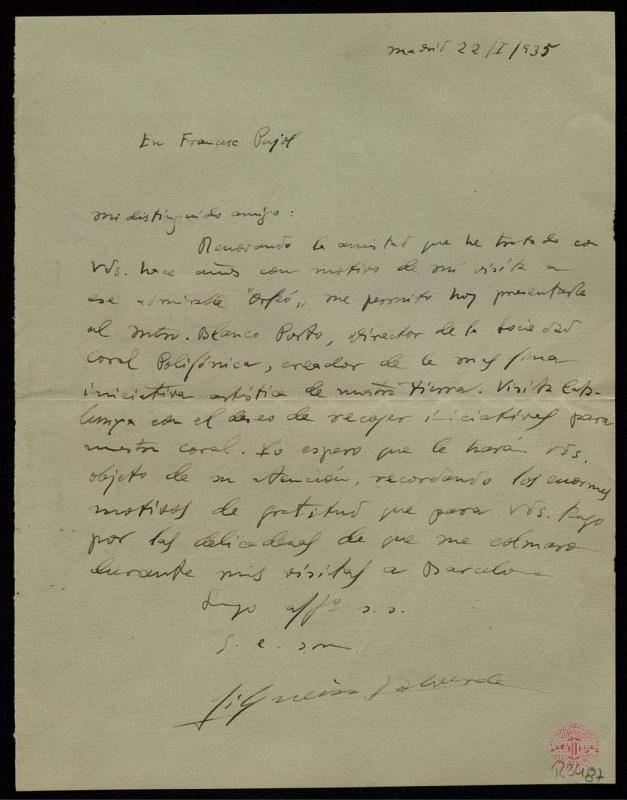 Madrid 22/I/935
En Francesc Pujol
Mi distinguido amigo:
Renovando la amistad que he trabado con
Vds. hace años con motivo de mi visita a
ese admirable "Orfeó", me permito hoy presentarle
al mtro. Blanco Porto, director de la Sociedad
Coral Polifónica, creador de la mas fina
iniciativa artística de nuestra tierra. Visita Cata-
lunya con el deseo de recojer iniciativas para
nuestra coral. Yo espero que le harán Vds.
objeto de su atención, recordando los enormes
motivos de gratitud que para Vds. tengo
por las delicadezas de que me colmaron
durante mis visitas a Barcelona
Suyo affº s.s.
q. e. s. m.
R3487